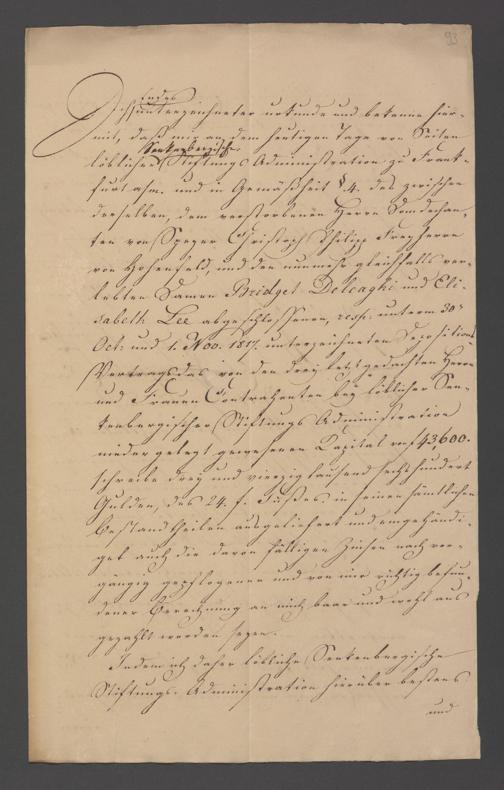 93
Endes
Ich unterzeichneter urkunde und bekenne hier-
mit, daß mir an dem heutigen Tage von Seiten
Senkenbergische
löblicher Stiftungs Administration zu Frank-
furt a/m. und in Gemäßheit § 4. des zwischen
derselben, dem verstorbenen Herrn Domdechan-
ten von Speyer Christoph Philipp Freyherrn
von Hohenfeld, und den nunmehr gleichfalls ver-
lebten Damen Bridget Deleaghi und Eli-
sabeth Lee abgeschlossenen, resp. unterm 30n
Oct. und 1. Nov. 1817. unterzeichneten Depositions
Vertrags das von den drey letztgedachten Herrn
und Frauen Contrahenten bey löblicher Sen-
kenbergischer Stiftungs Administration
niedergelegt gewesene Kapital von f 43,600.
schreibe drey und vierzig tausend sechs hundert
Gulden, des 24. f. Fußes in seinen sämtlichen
Bestandtheilen ausgeliefert und eingehändi-
get auch die davon fälligen Zinsen nach vor-
gängig gepflogener und von mir richtig befun-
dener Berechnung an mich baar und wohl aus
gezahlt worden seyen.
Indem ich daher löbliche Senkenbergische
Stiftungs-Administration hierüber bestens
und